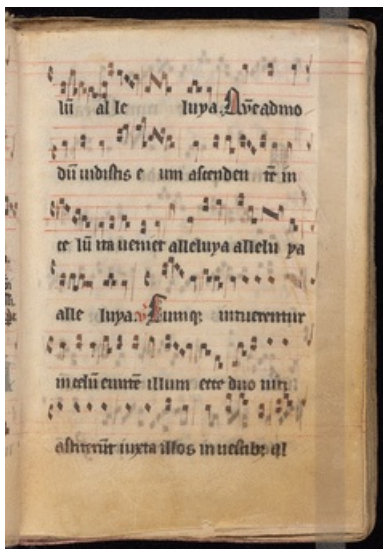 lū al le luya. Quēadmo
dū uidistis e um ascenden tē in
ce lū ita ueniet alleluya allelu ya
alle luya. v Cumq; intuerentur
in celū euntē illum ecce duo uiri
astiterūt iuxta illos in uestib; al